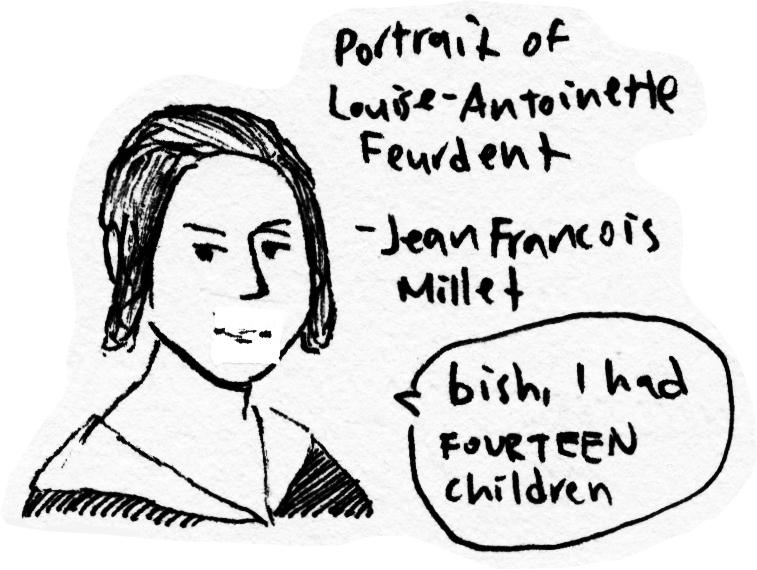 Portrait of
Louise-Antoinette
Feurdent
-Jean Francois
Millet
bish, I had
FOURTEEN
children